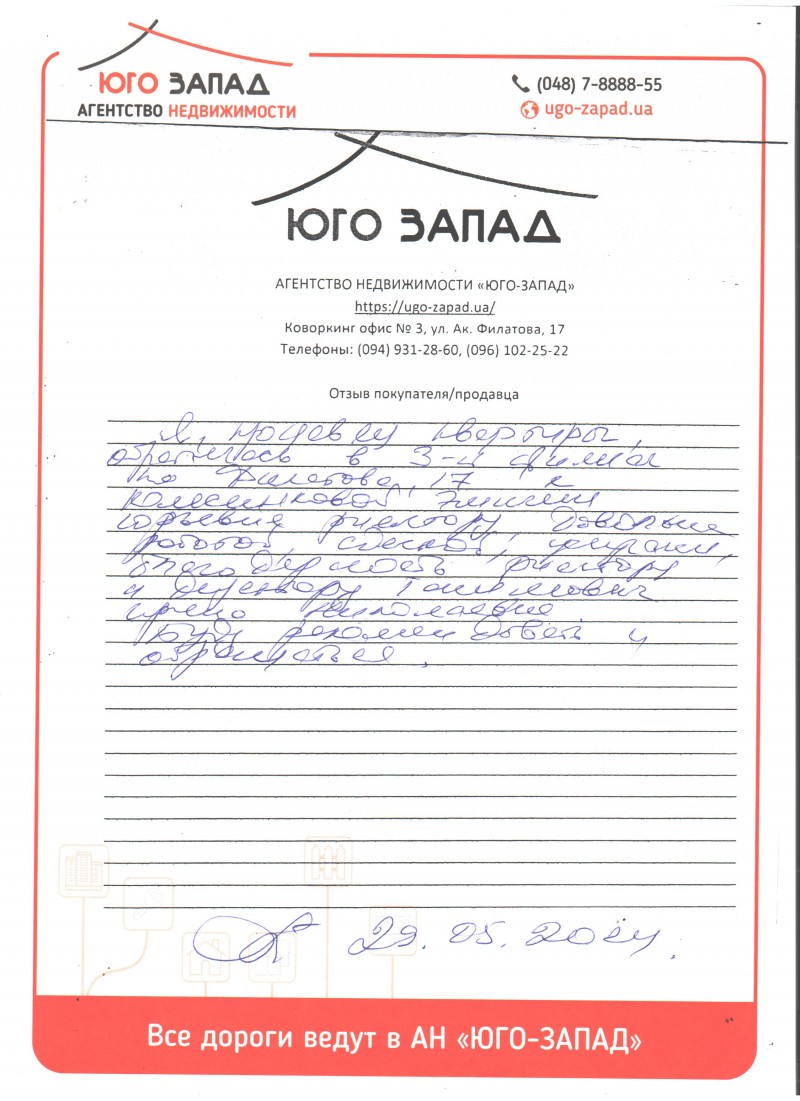 ЮГО ЗАПАД
АГЕНТСТВО НЕДВИЖИМОСТИ
(048) 7-8888-55
ugo-zapad.ua
ЮГО ЗАПАД
АГЕНТСТВО НЕДВИЖИМОСТИ «ЮГО-ЗАПАД»
https://ugo-zapad.ua/
Коворкинг офис № 3, ул. Ак. Филатова, 17
Телефоны: (094) 931-28-60, (096) 102-25-22
Отзыв покупателя/продавца
Я, квартиры,
обратилась в 3-й филиал
на Филатова, 17 к
Юрьевне риелтору. Довольна
работой,
благодарность риелтору
и директору
Николаевне
Буду рекомендовать и
обращаться.
29.05.
Все дороги ведут в АН «ЮГО-ЗАПАД»